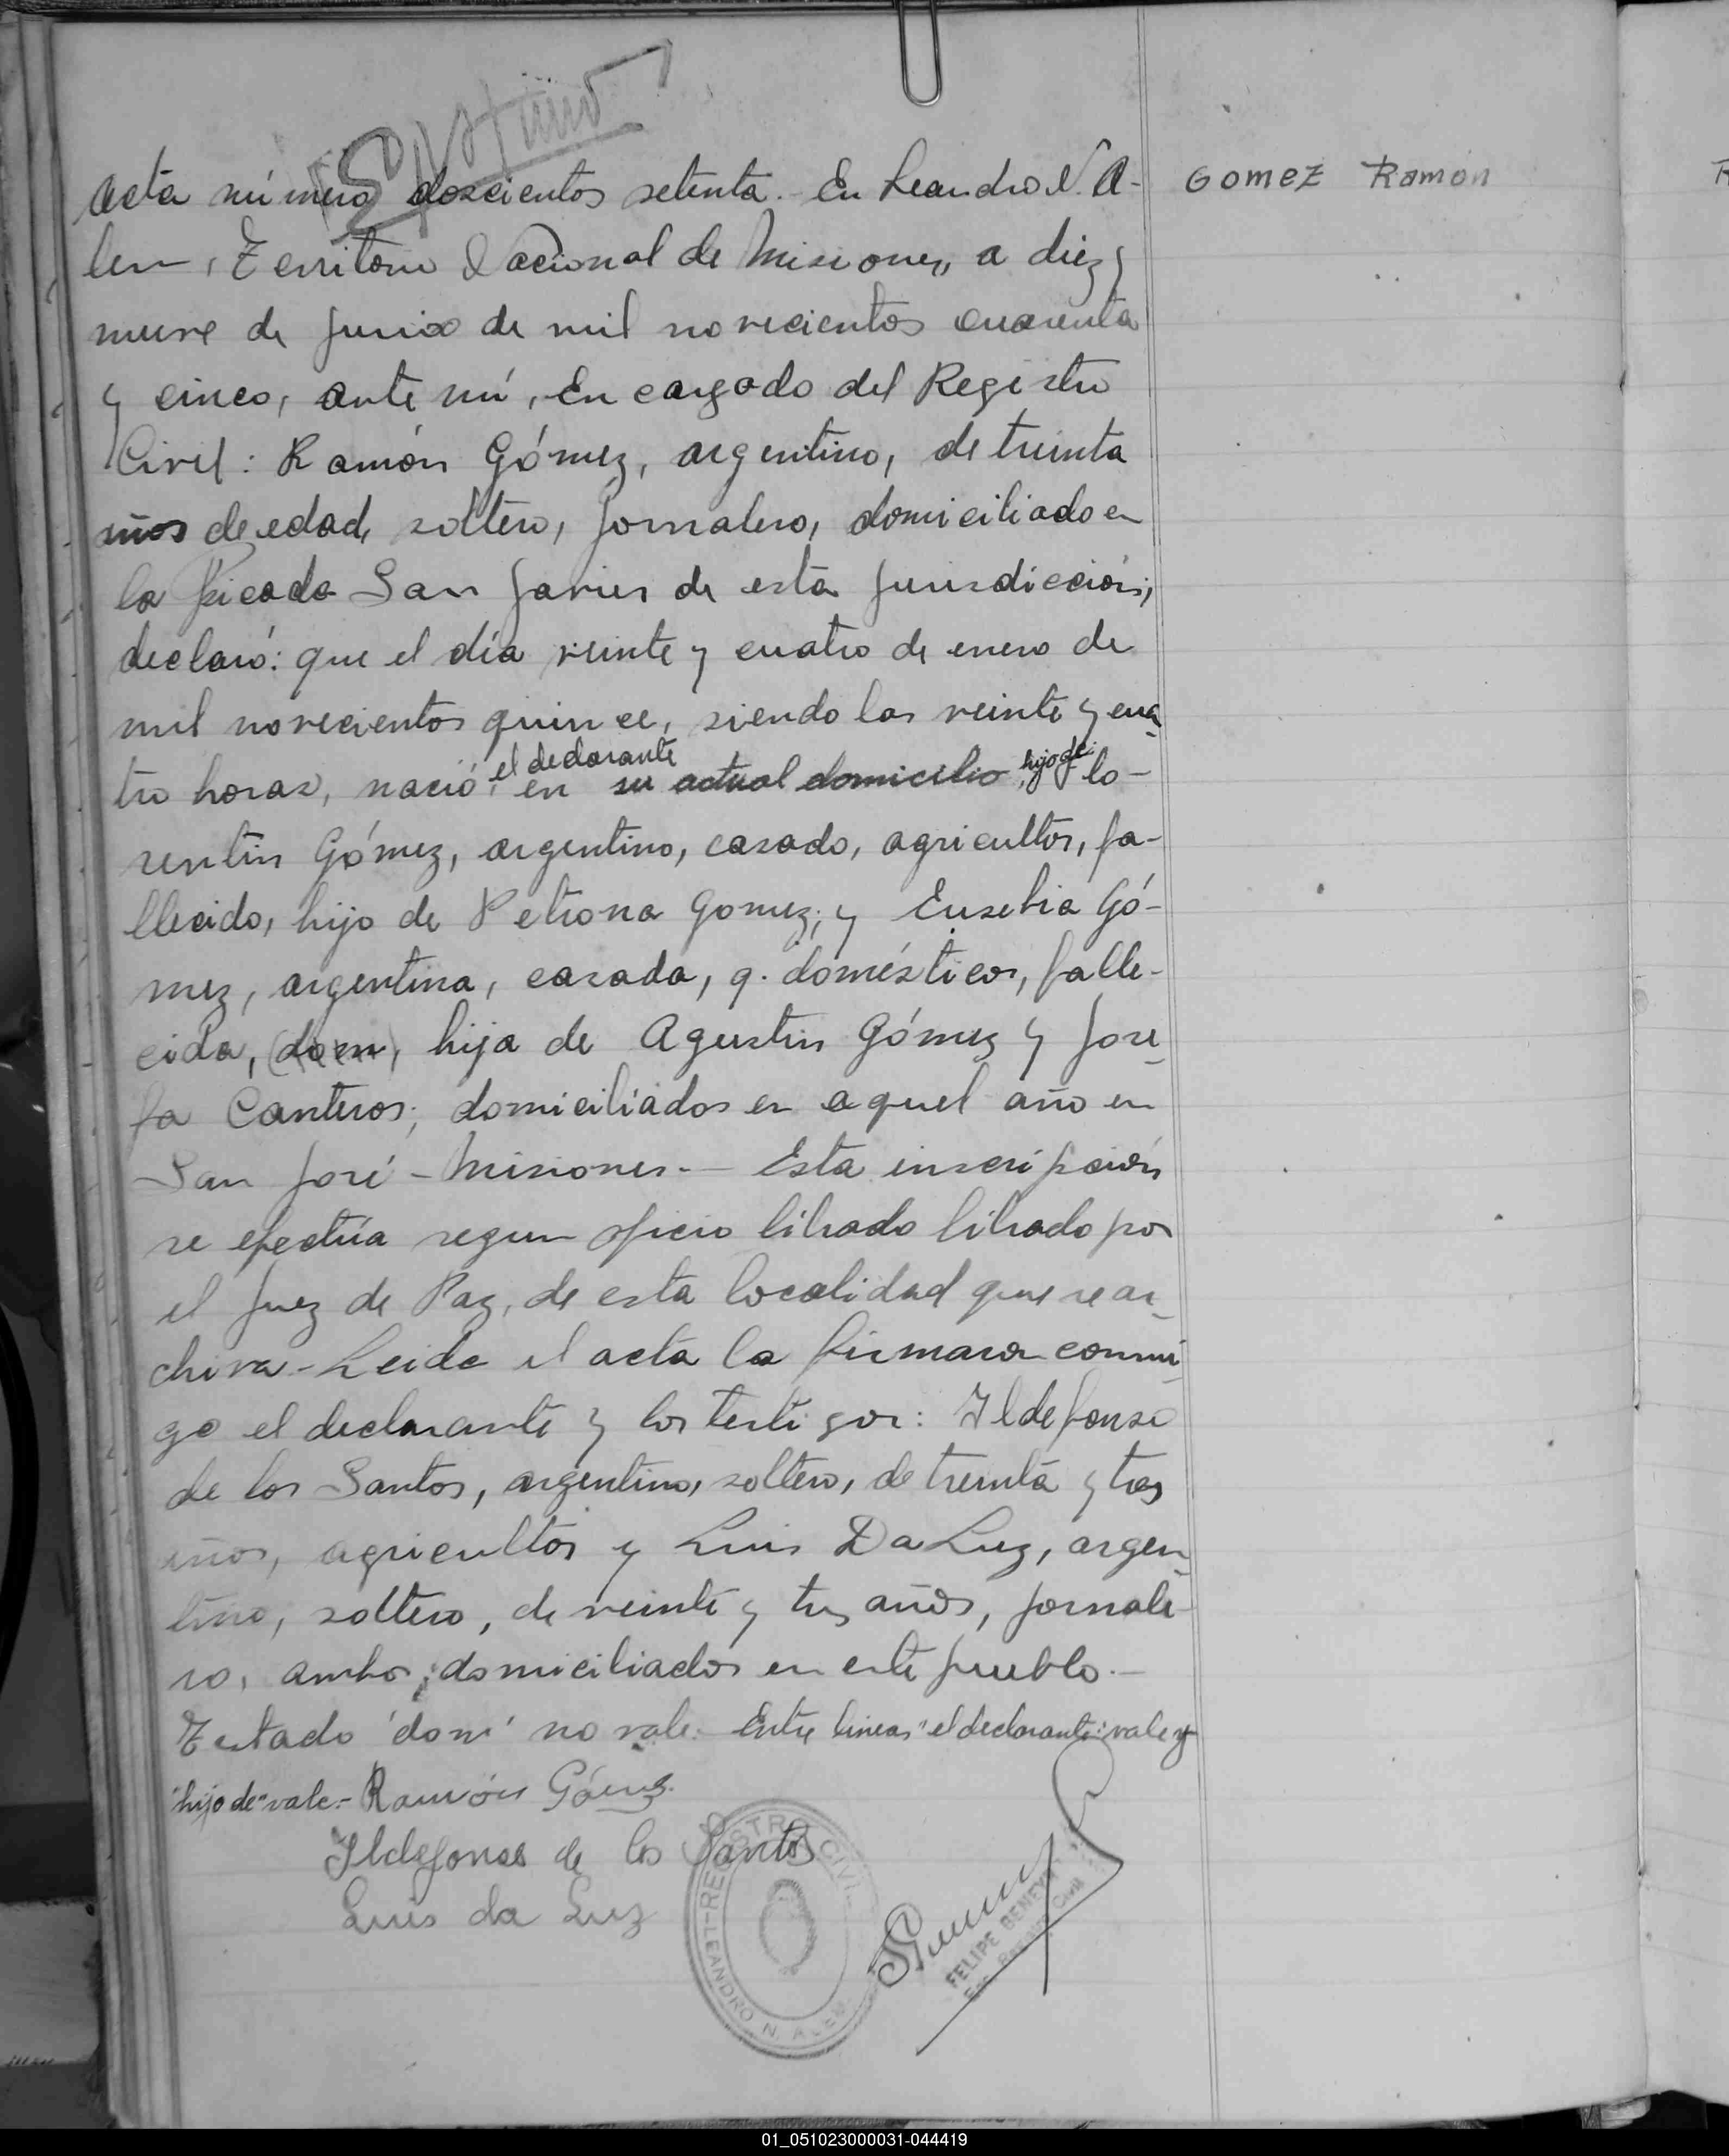 Acta número doscientos setenta.- En Leandro N. A-
lem, Territorio Nacional de Misiones, a diez y
nueve de junio de mil novecientos cuarenta
y cinco, ante mí, Encargado del Registro
Civil: Ramón Gómez, argentino, de treinta
años de edad, soltero, jornalero, domiciliado en
la picada San Javier de esta jurisdicción;
declaró: que el día veinte y cuatro de enero de
mil novecientos quince, siendo las veinte y cua
tro horas, nació, el declarante en su actual domicilio, hijo de: lo-
rentin Gómez, argentino, casado, agricultor, fa-
llecido, hijo de Petrona Gomez; y Eusebia Gó-
mez, argentina, casada, q. domésticos, falle-
cida, (dom), hija de Agustin Gómez y Jose
fa Canteros; domiciliados en aquel año en
San José - Misiones.- Esta inscripción
se efectúa segun oficio librado librado por
el Juez de Paz, de esta localidad que se ar
chiva - Leida el acta la firmaron conmi
go el declarante y los testigos: Ildefonso
de los Santos, argentino, soltero, de treinta y tres
años, agricultor y Luis Da Luz, argen
tino, soltero, de veinte y tres años, jornale
ro, ambos domiciliados en este pueblo.-
Testado 'domi' no vale.- Entre lineas "el declarante" vale y
"hijo de" vale.- Ramón Gómez
Ildefonso de los Santos
Luis da Luz
REGISTRO CIVIL
LEANDRO N. ALEM
FELIPE BENEY
Enc. Registro Civil
Gomez Ramon
01_051023000031-044419